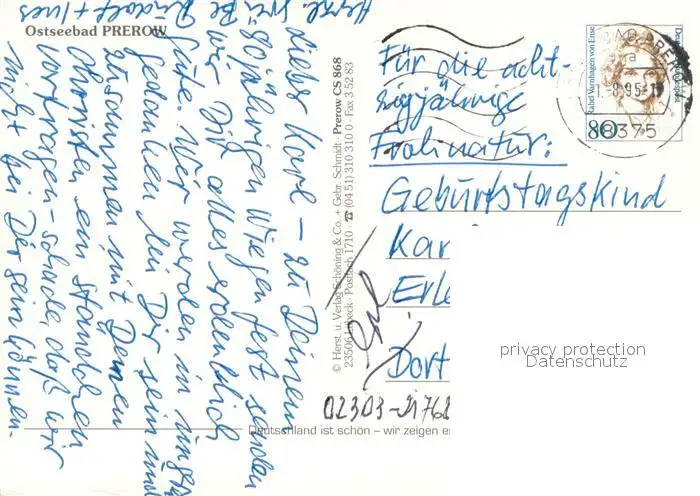 Ostseebad PREROW
Lieber Karl – zu Deinem
80 jährigen Wiegenfest senden
wir Dir alles erdenklich
Gute. Wir werden in
gedanken bei Dir sein und
zusammen mit Deinen
Christen ein Ständchen
vortragen – schade, daß wir
nicht bei Dir sein können.
Herzl. Grüße
Rudolf + Ines
© Herst. u. Verlag Schöning & Co. + Gebr. Schmidt · Prerow CS 868
23506 Lübeck · Postfach 1710 · ☎ (04 51) 310 310 0 · Fax 3 52 83
Für die acht-
zigjährige
Frohnatur:
Geburtstagskind
Kar
Erle
Dort
02303-
Rahel Varnhagen von Ense
Deutsche Bundespost
80
a
-8.95-1
18375
privacy protection
Datenschutz
Deutschland ist schön – wir zeigen es